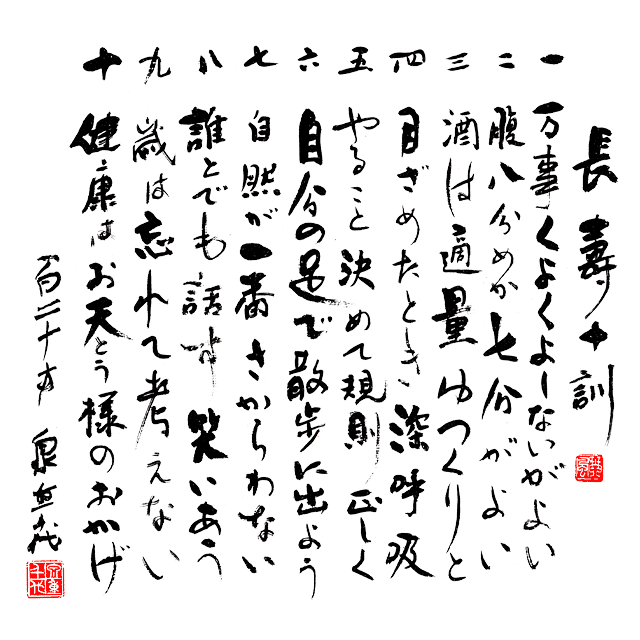 長壽十訓
一 万事くよくよしないがよい
二 腹八分めか七分がよい
三 酒は適量ゆっくりと
四 目ざめたとき深呼吸
五 やること決めて規則正しく
六 自分の足で散歩に出よう
七 自然が一番さからわない
八 誰とでも話す笑いあう
九 歳は忘れて考えない
十 健康はお天とう様のおかげ
百二十才 泉重千代
泉重千代